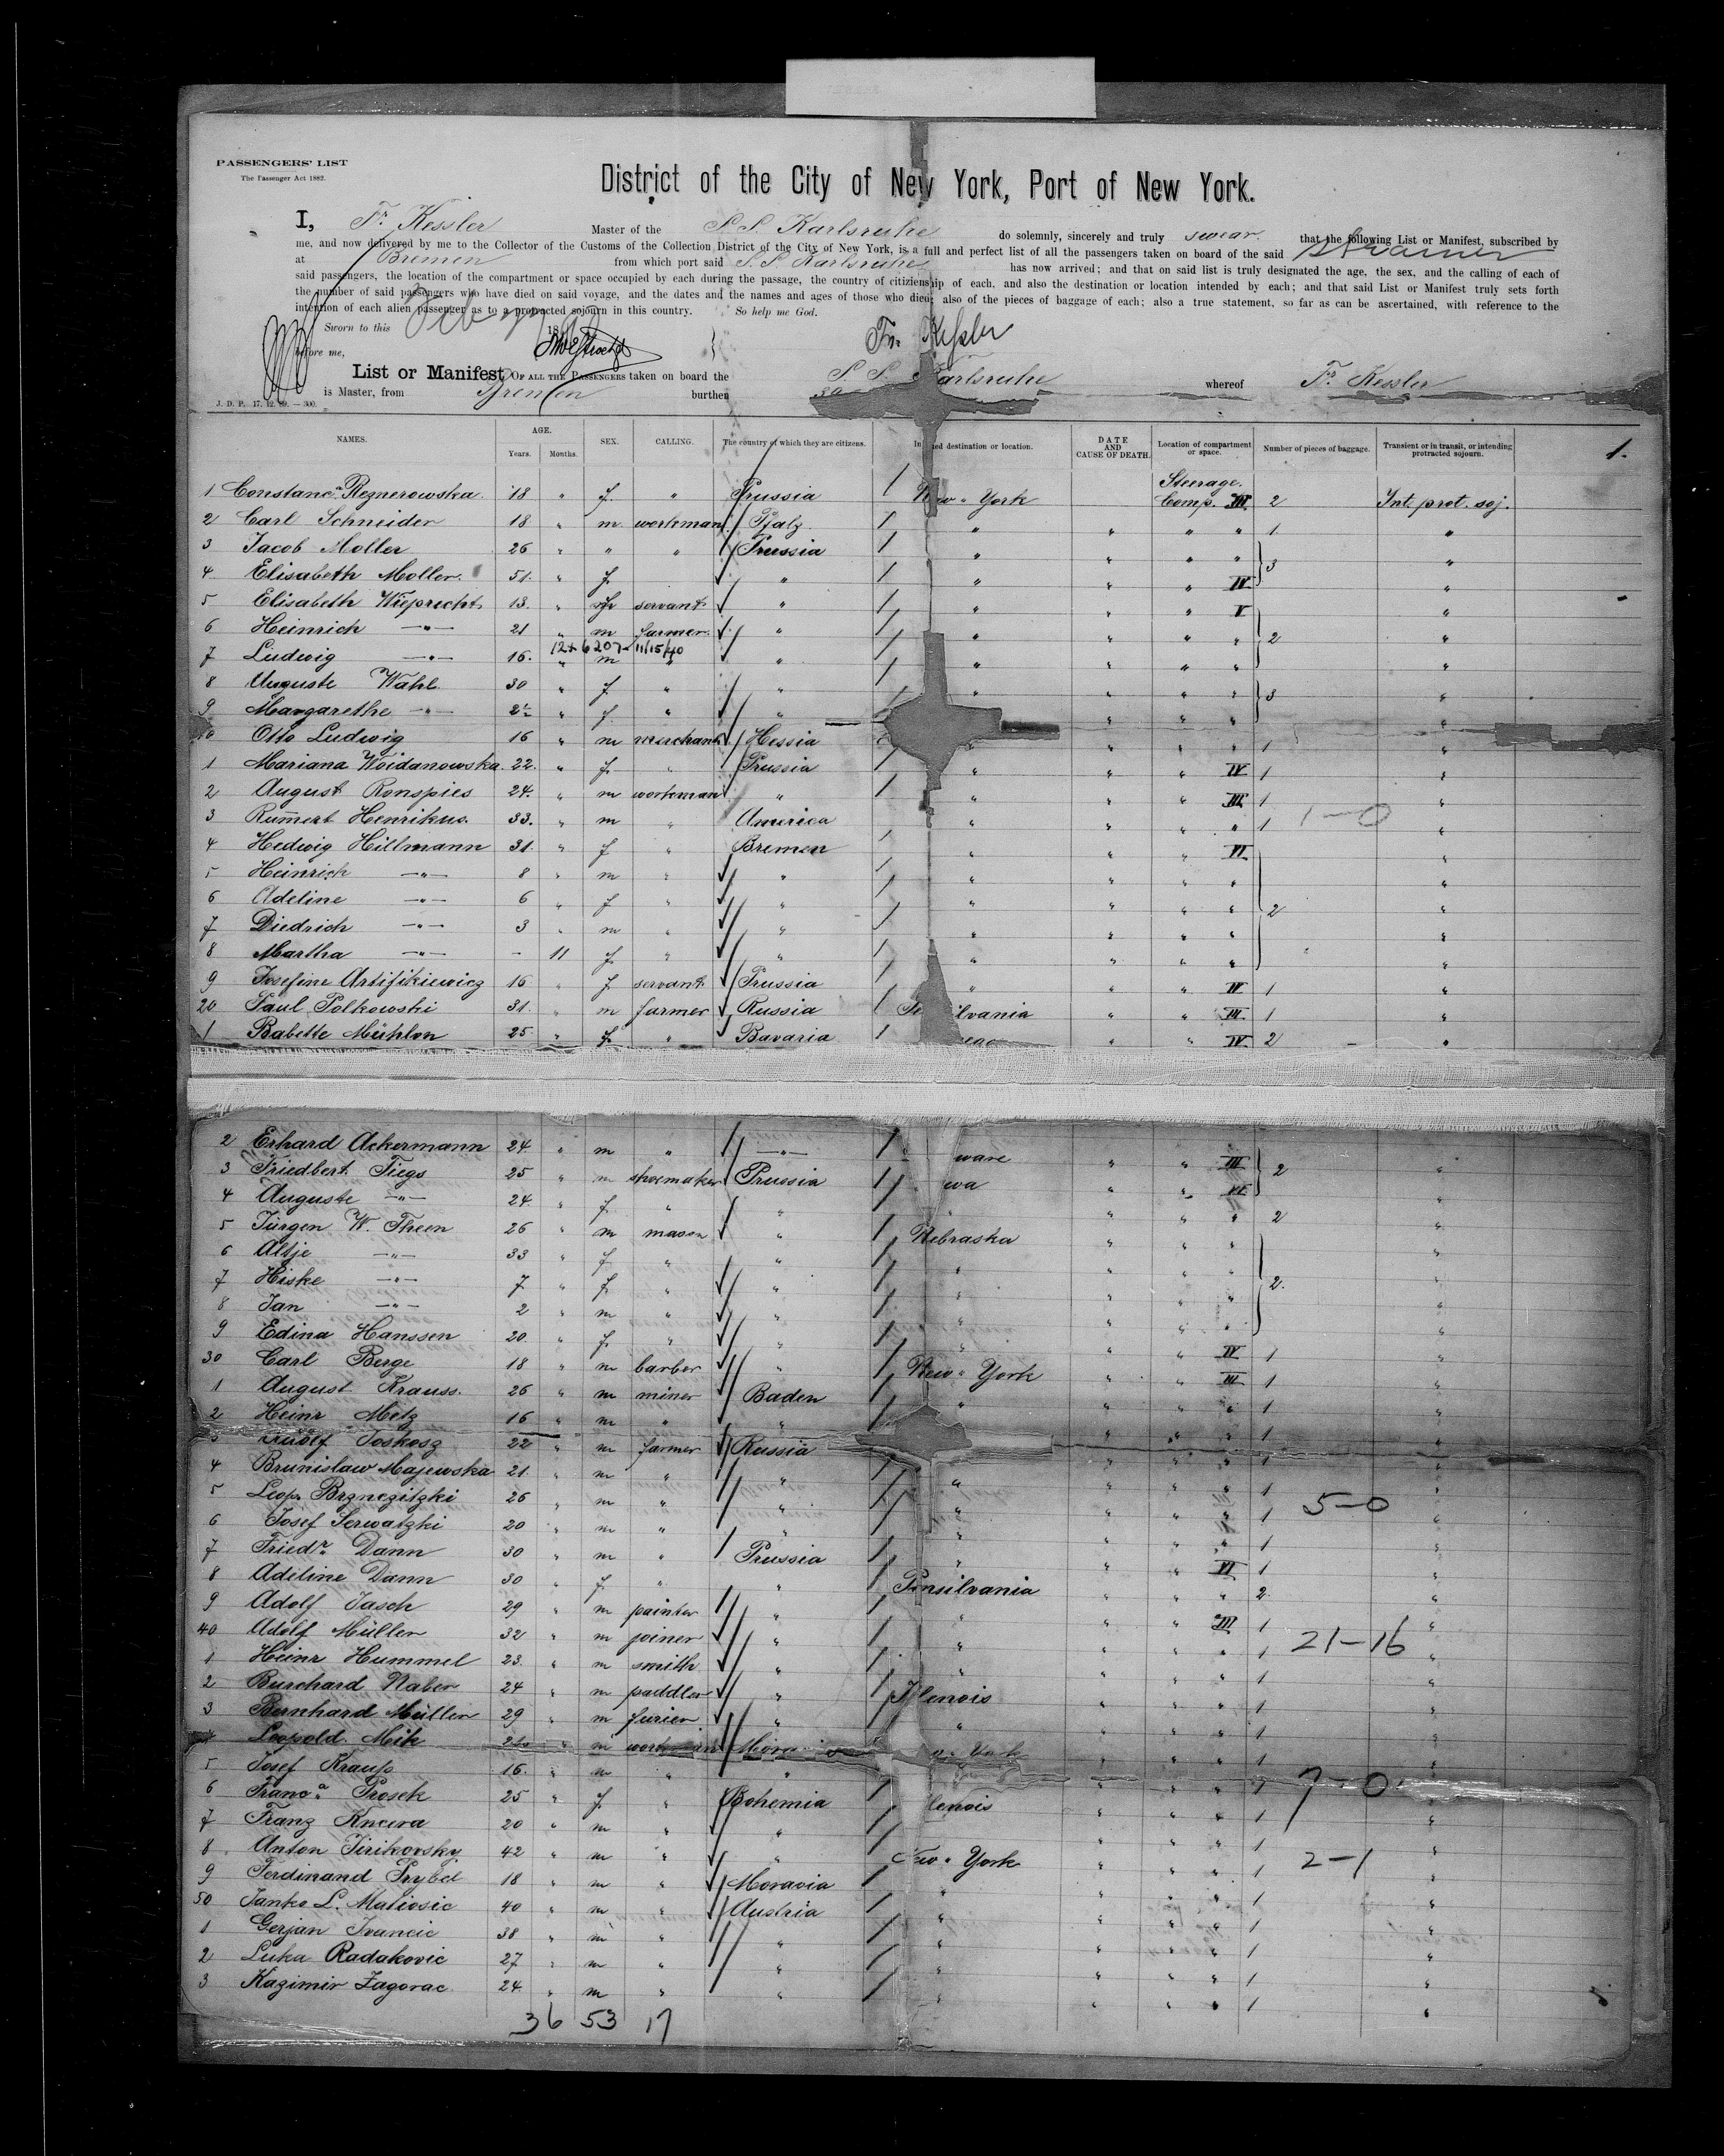 PASSENGERS' LIST
The Passenger Act 1882.
District of the City of New York, Port of New York.
I, Fr. Kessler Master of the S.S. Karlsruhe do solemnly, sincerely and truly swear that the following List or Manifest, subscribed by
me, and now delivered by me to the Collector of the Customs of the Collection District of the City of New York, is a full and perfect list of all the passengers taken on board of the said Steamer
at Bremen from which port said S.S. Karlsruhe has now arrived; and that on said list is truly designated the age, the sex, and the calling of each of
said passengers, the location of the compartment or space occupied by each during the passage, the country of citizienship of each, and also the destination or location intended by each; and that said List or Manifest truly sets forth
the number of said passengers who have died on said voyage, and the dates and the names and ages of those who died; also of the pieces of baggage of each; also a true statement, so far as can be ascertained, with reference to the
intention of each alien passenger as to a protracted sojourn in this country. So help me God.
Sworn to this Feb 18
before me, Fr. Kessler
List or Manifest OF ALL THE PASSENGERS taken on board the S.S. Karlsruhe whereof Fr. Kessler
is Master, from Bremen burthen
J. D. P. 17. 12. 89. — 300.
NAMES. AGE. Years. Months. SEX. CALLING. The country of which they are citizens. Intended destination or location. DATE AND CAUSE OF DEATH. Location of compartment or space. Number of pieces of baggage. Transient or in transit, or intending protracted sojourn. 1.
1 Constanca Reznerowska 18 " f. " Prussia New-York Steerage. Comp. III. 2 Int. prot. soj.
2 Carl Schneider 18 " m workman Pfalz " " " " 1 "
3 Jacob Moller 26 " " " Prussia " " " " 3 "
4 Elisabeth Moller 51 " f. " " " " IV "
5 Elisabeth Wieprecht 13 " f servant " " " " V "
6 Heinrich —"— 21 " m farmer " " " " " 2 "
12x 6207 11/15/40
7 Ludwig —"— 16 " m " " " " " " "
8 Auguste Wahl 30 " f. " " " " " " 3 "
9 Margarethe —"— 2 " f. " " " " " "
10 Otto Ludwig 16 " m merchant Hessia " " " 1 "
1 Mariana Woidanowska 22 " f. " Prussia " " " IV 1 "
2 August Ronspies 24 " m workman " " " " III 1 "
3 Rumert Henrikus 33 " m " America " " " " 1 1-0 "
4 Hedwig Hillmann 31 " f " Bremen " " " VI "
5 Heinrich —"— 8 " m " " " " " " "
6 Adeline —"— 6 " f " " " " " " 2 "
7 Diedrich —"— 3 " m " " " " " " "
8 Martha —"— - 11 f. " " " " " " "
9 Josefine Artifikiewicz 16 " f servant Prussia " " " IV 1 "
20 Paul Polkowski 31 " m farmer Russia ilvania " " III 1 "
1 Babette Mühlon 25 " f. " Bavaria " " IV 2 "
2 Erhard Ackermann 24 " m " —"— ware " " III 2 "
3 Friedbert Tiegs 25 " m shoemaker Prussia wa " " VI "
4 Auguste —"— 24 " f. " " " " " " 2 "
5 Jürgen W. Theen 26 " m mason " Nebraska " " " "
6 Altje —"— 33 " f " " " " " " "
7 Hiske —"— 7 " f. " " " " " " 2 "
8 Jan —"— 2 " m " " " " " " "
9 Edina Hanssen 20 " f. " " " " " IV 1 "
30 Carl Berge 18 " m barber " New-York " " III 1 "
1 August Krauss. 26 " m miner Baden " " " " 1 "
2 Heinr Metz 16 " m " " " " " 1 "
3 Rudolf Toskosz 22 " m farmer Russia " " " 1 "
4 Brunislaw Majewska 21 " m " " " " " " 1 "
5 Leop. Brznezitzki 26 " m " " " " " " 1 5-0 "
6 Josef Serwatzki 20 " m " " " " " " 1 "
7 Friedr. Dann 30 " m " Prussia " " " VI 1 "
8 Adeline Dann 30 " f. " " Pensilvania " " " 2 "
9 Adolf Jasch 29 " m painter " " " " III 1 "
40 Adolf Müller 32 " m joiner " " " " " 1 21-16 "
1 Heinr Hummel 23 " m smith " " " " " 1 "
2 Burchard Naber 24 " m paddler " Ilenois " " " 1 "
3 Bernhard Müller 29 " m furier " " " " " 1 "
4 Leopold Mik " m workman York " " " 1 "
5 Josef Krauss 16 " m " " " " " 1 7-0 "
6 Franca Prosek 25 " f. " Bohemia lenois " " " 1 "
7 Franz Kncura 20 " m " " " " " 1 "
8 Anton Jirikovsky 42 " m " " New-York " " " 1 2-1 "
9 Ferdinand Prybil 18 " m " Moravia " " " " 1 "
50 Janko L. Matiosic 40 " m " Austria " " " " 1 "
1 Gerjan Ivancic 38 " m " " " " " " 1 "
2 Luka Radakovic 27 " m " " " " " " 1 "
3 Kazimir Zagorac 24 " m " " " " " " 1 "
36 53 17